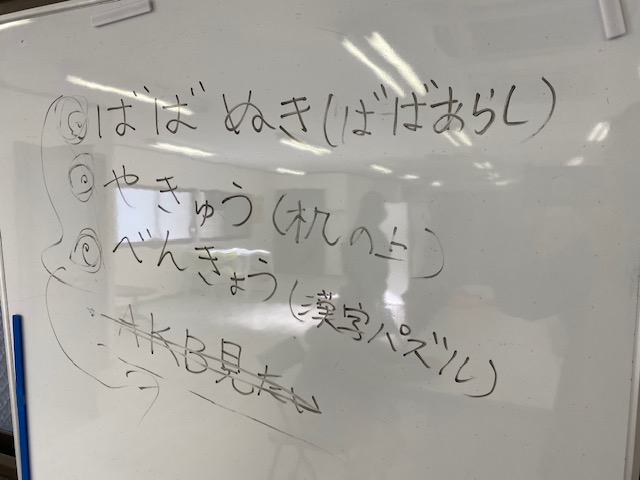 ◎ばばぬき(ばばあらし)
◎やきゅう(机の上)
◎べんきょう(漢字パズル)
・AKB見たい